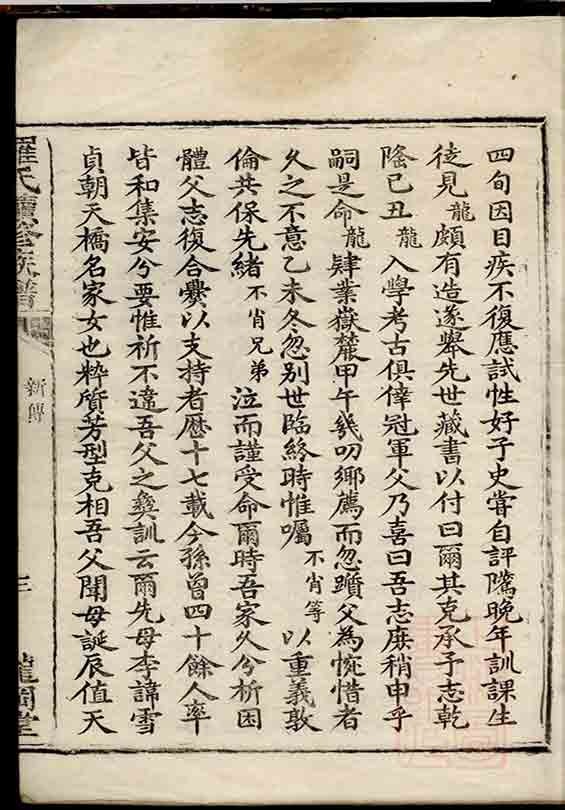 四旬因目疾不復應試性好子史嘗自評隲晚年訓課生
徒見龍頗有造遂舉先世藏書以付曰爾其克承予志乾
隆己丑龍入學考古俱倖冠軍父乃喜曰吾志庶稍申乎
嗣是命龍肄業嶽麓甲午幾叨鄉薦而忽躓父為惋惜者
久之不意乙未冬忽別世臨終時惟囑不肖等以重義敦
倫共保先緒不肖兄弟泣而謹受命爾時吾家久分析因
體父志復合爨以支持者曆十七載今孫曾四十餘人率
皆和集安兮要惟祈不違吾父之彝訓云爾先母李諱雪
貞朝天橋名家女也粹質芳型克相吾父聞母誕辰值天
羅氏續修族譜
新傳
三